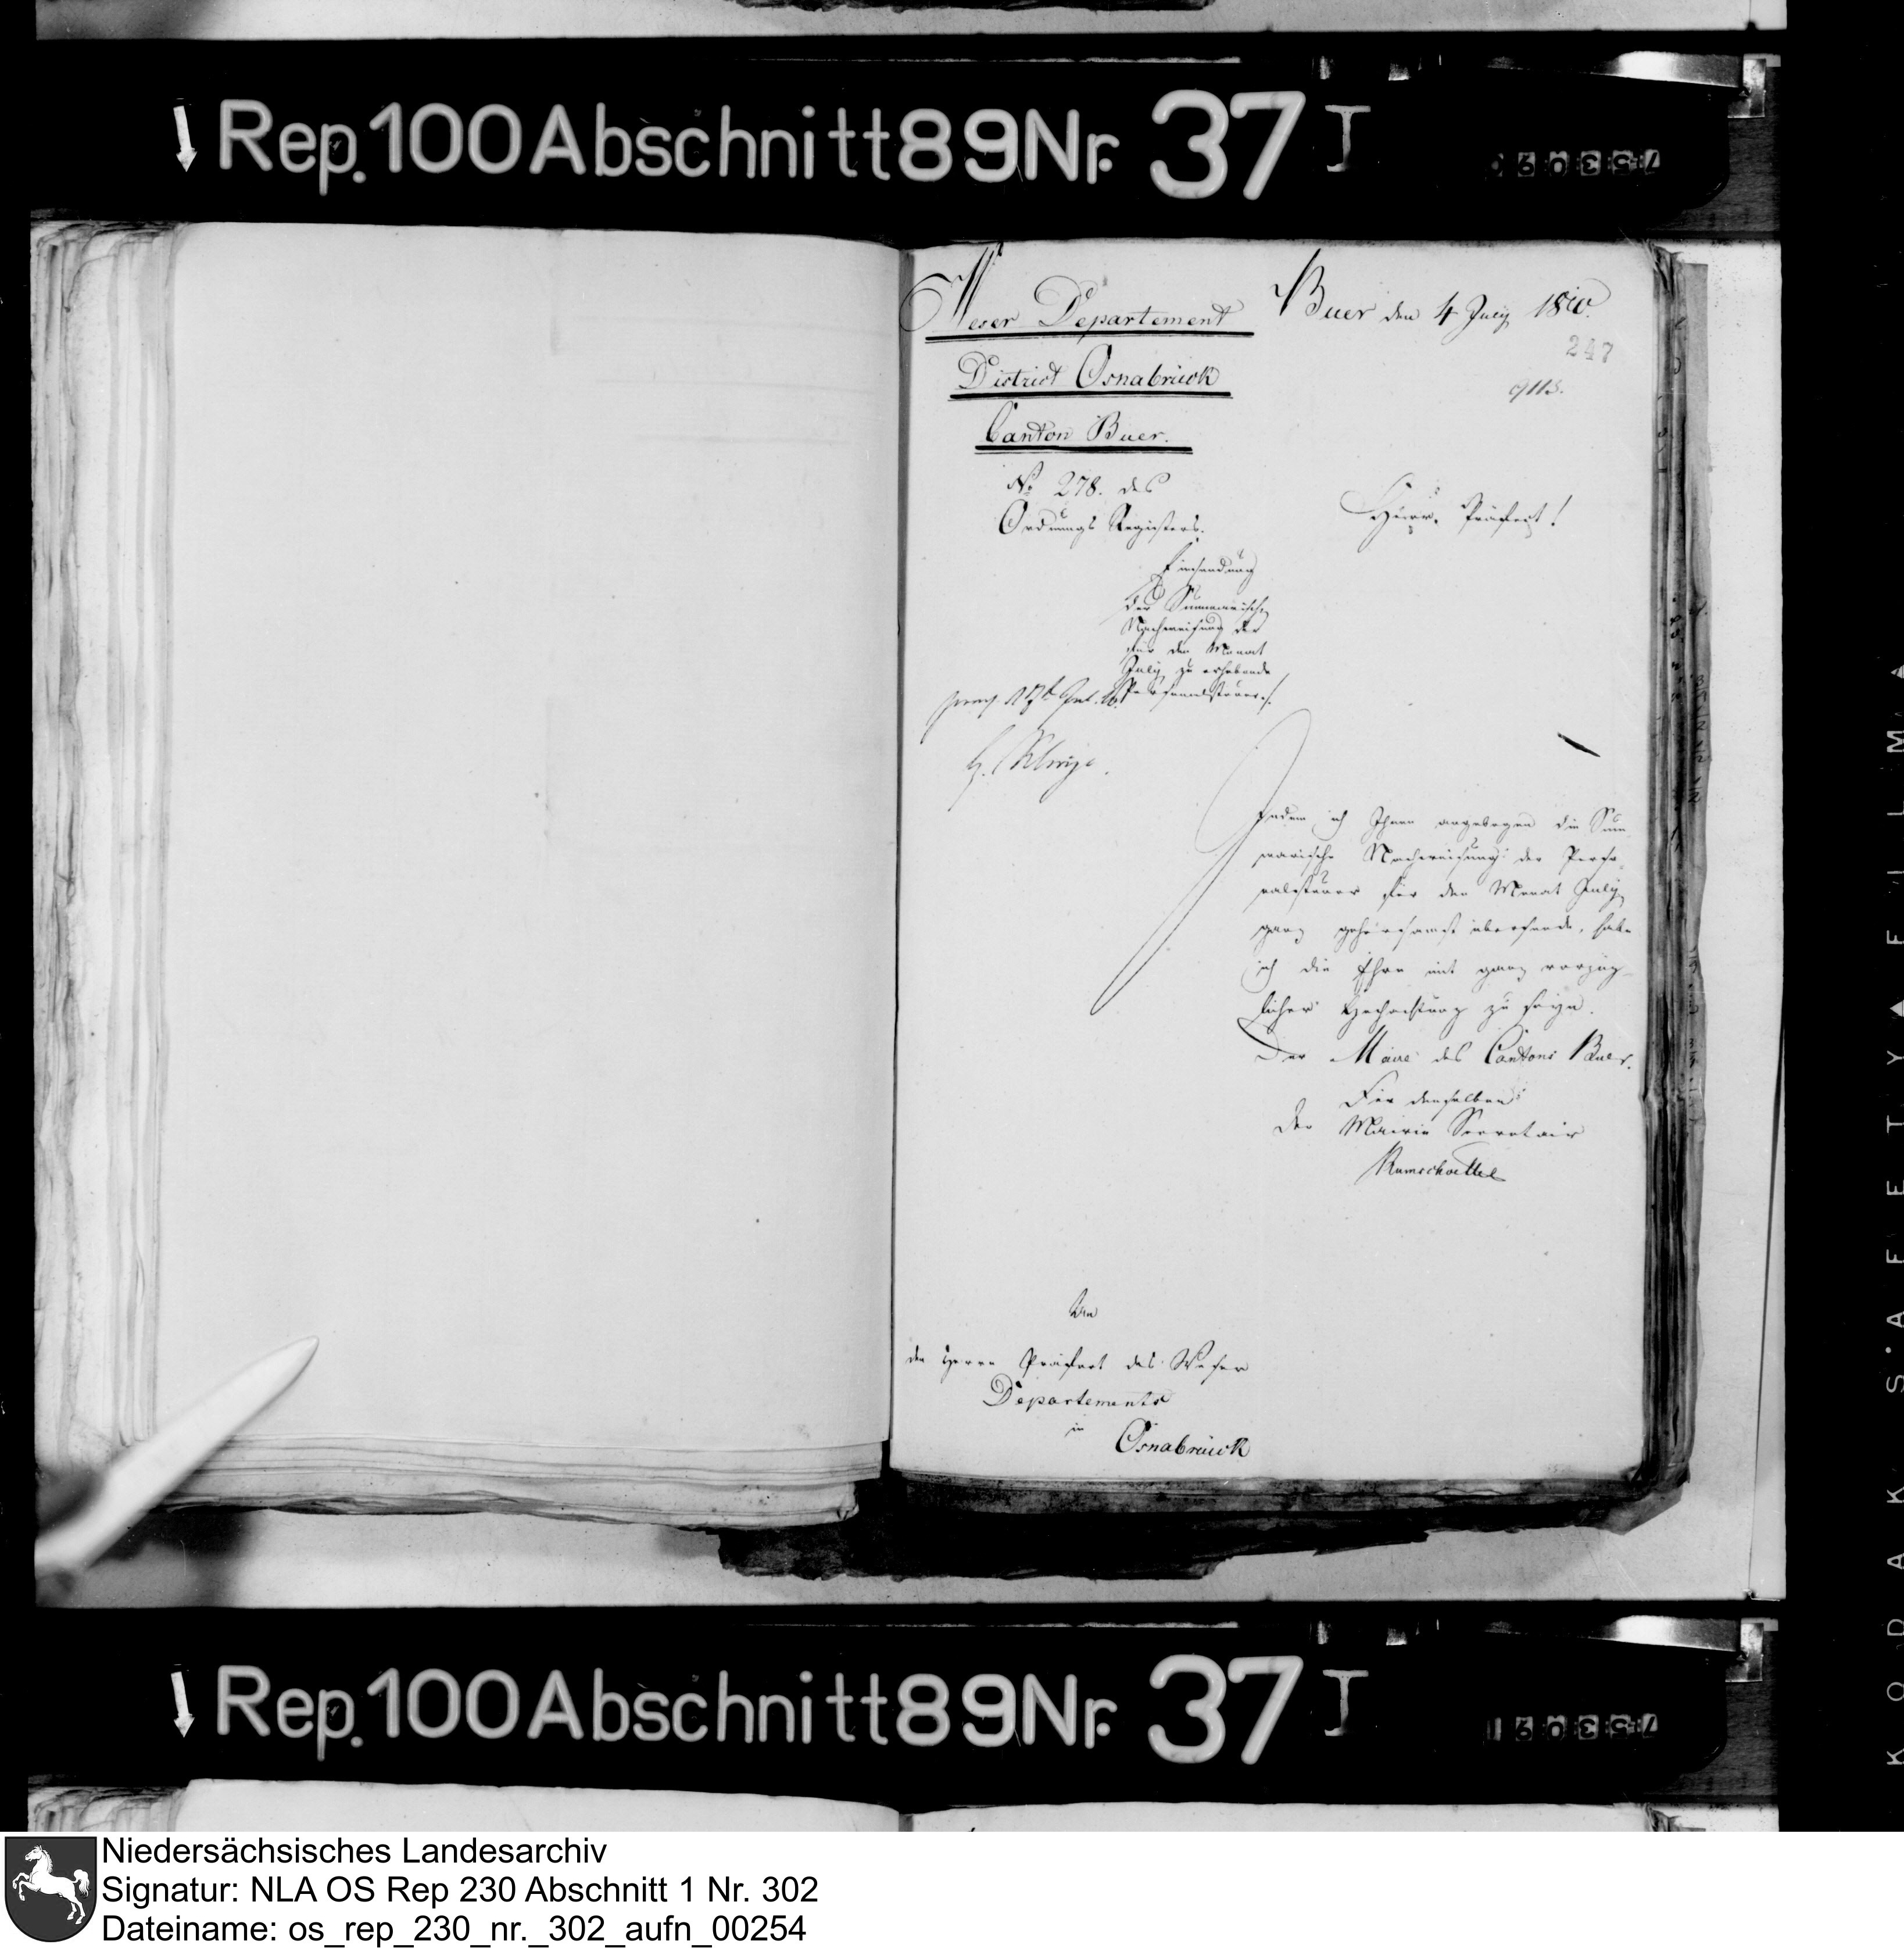 Rep. 100 Abschnitt 89 Nr. 37 I
Weser Departement
District Osnabrück
Canton Buer.
No 278. des
Ordnungs Registers.
Einsendung
der Summarischen
Nachweisung der
für den Monat
July zu erhebende
Personalsteuer.
Buer den 4 July 1810.
247
9113.
Herr Präfect!
Indem ich Ihnen angebogen die Sum
marische Nachweisung der Perso-
nalsteuer für den Monat July
ganz gehorsamst übersende, habe
ich die Ehre mit ganz vorzüg-
licher Hochachtung zu seyn.
Der Maire des Cantons Buer.
Für denselben
Der Mairie Secretair
Ramschoettel
An
den Herrn Präfect des Weser
Departements
in
Osnabrück
Rep. 100 Abschnitt 89 Nr. 37 I
KODAK S·A·F·E·T·Y FILM
Niedersächsisches Landesarchiv
Signatur: NLA OS Rep 230 Abschnitt 1 Nr. 302
Dateiname: os_rep_230_nr._302_aufn_00254